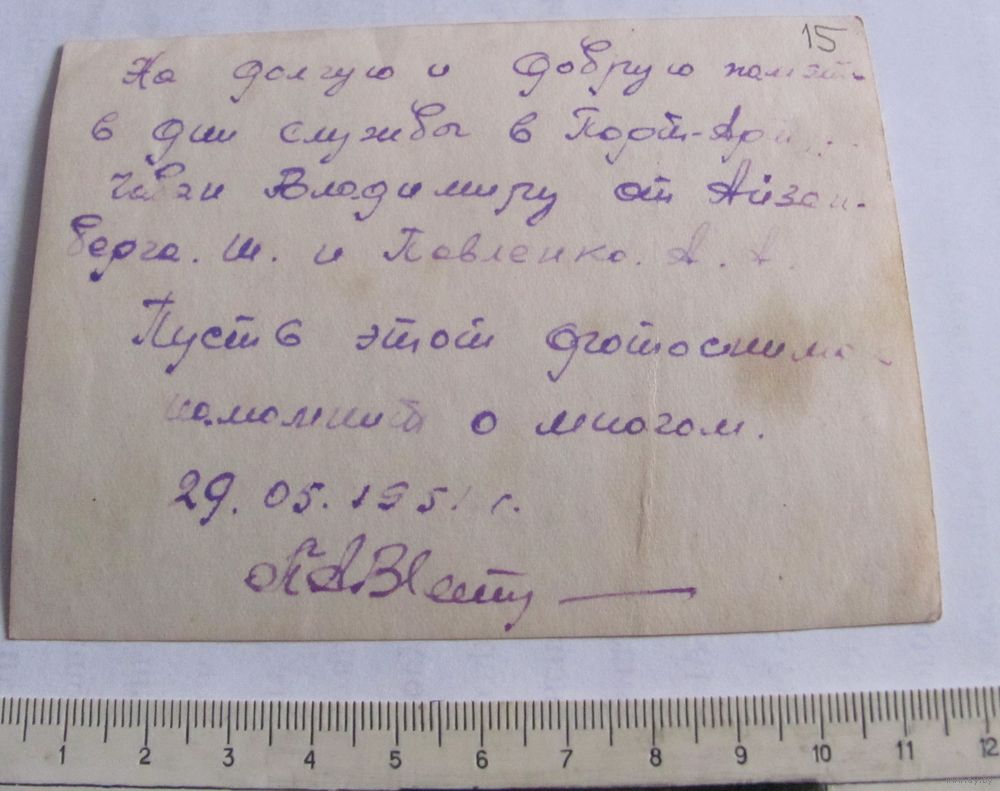 15
На долгую и добрую память
в дни службы в Порт-Арту
Владимиру от Айзан-
берга. Ш. и Павленко. А. А.
Пусть этот фотоснимок
напомнит о многом.
29. 05. 1951 г.
1 2 3 4 5 6 7 8 9 10 11 12